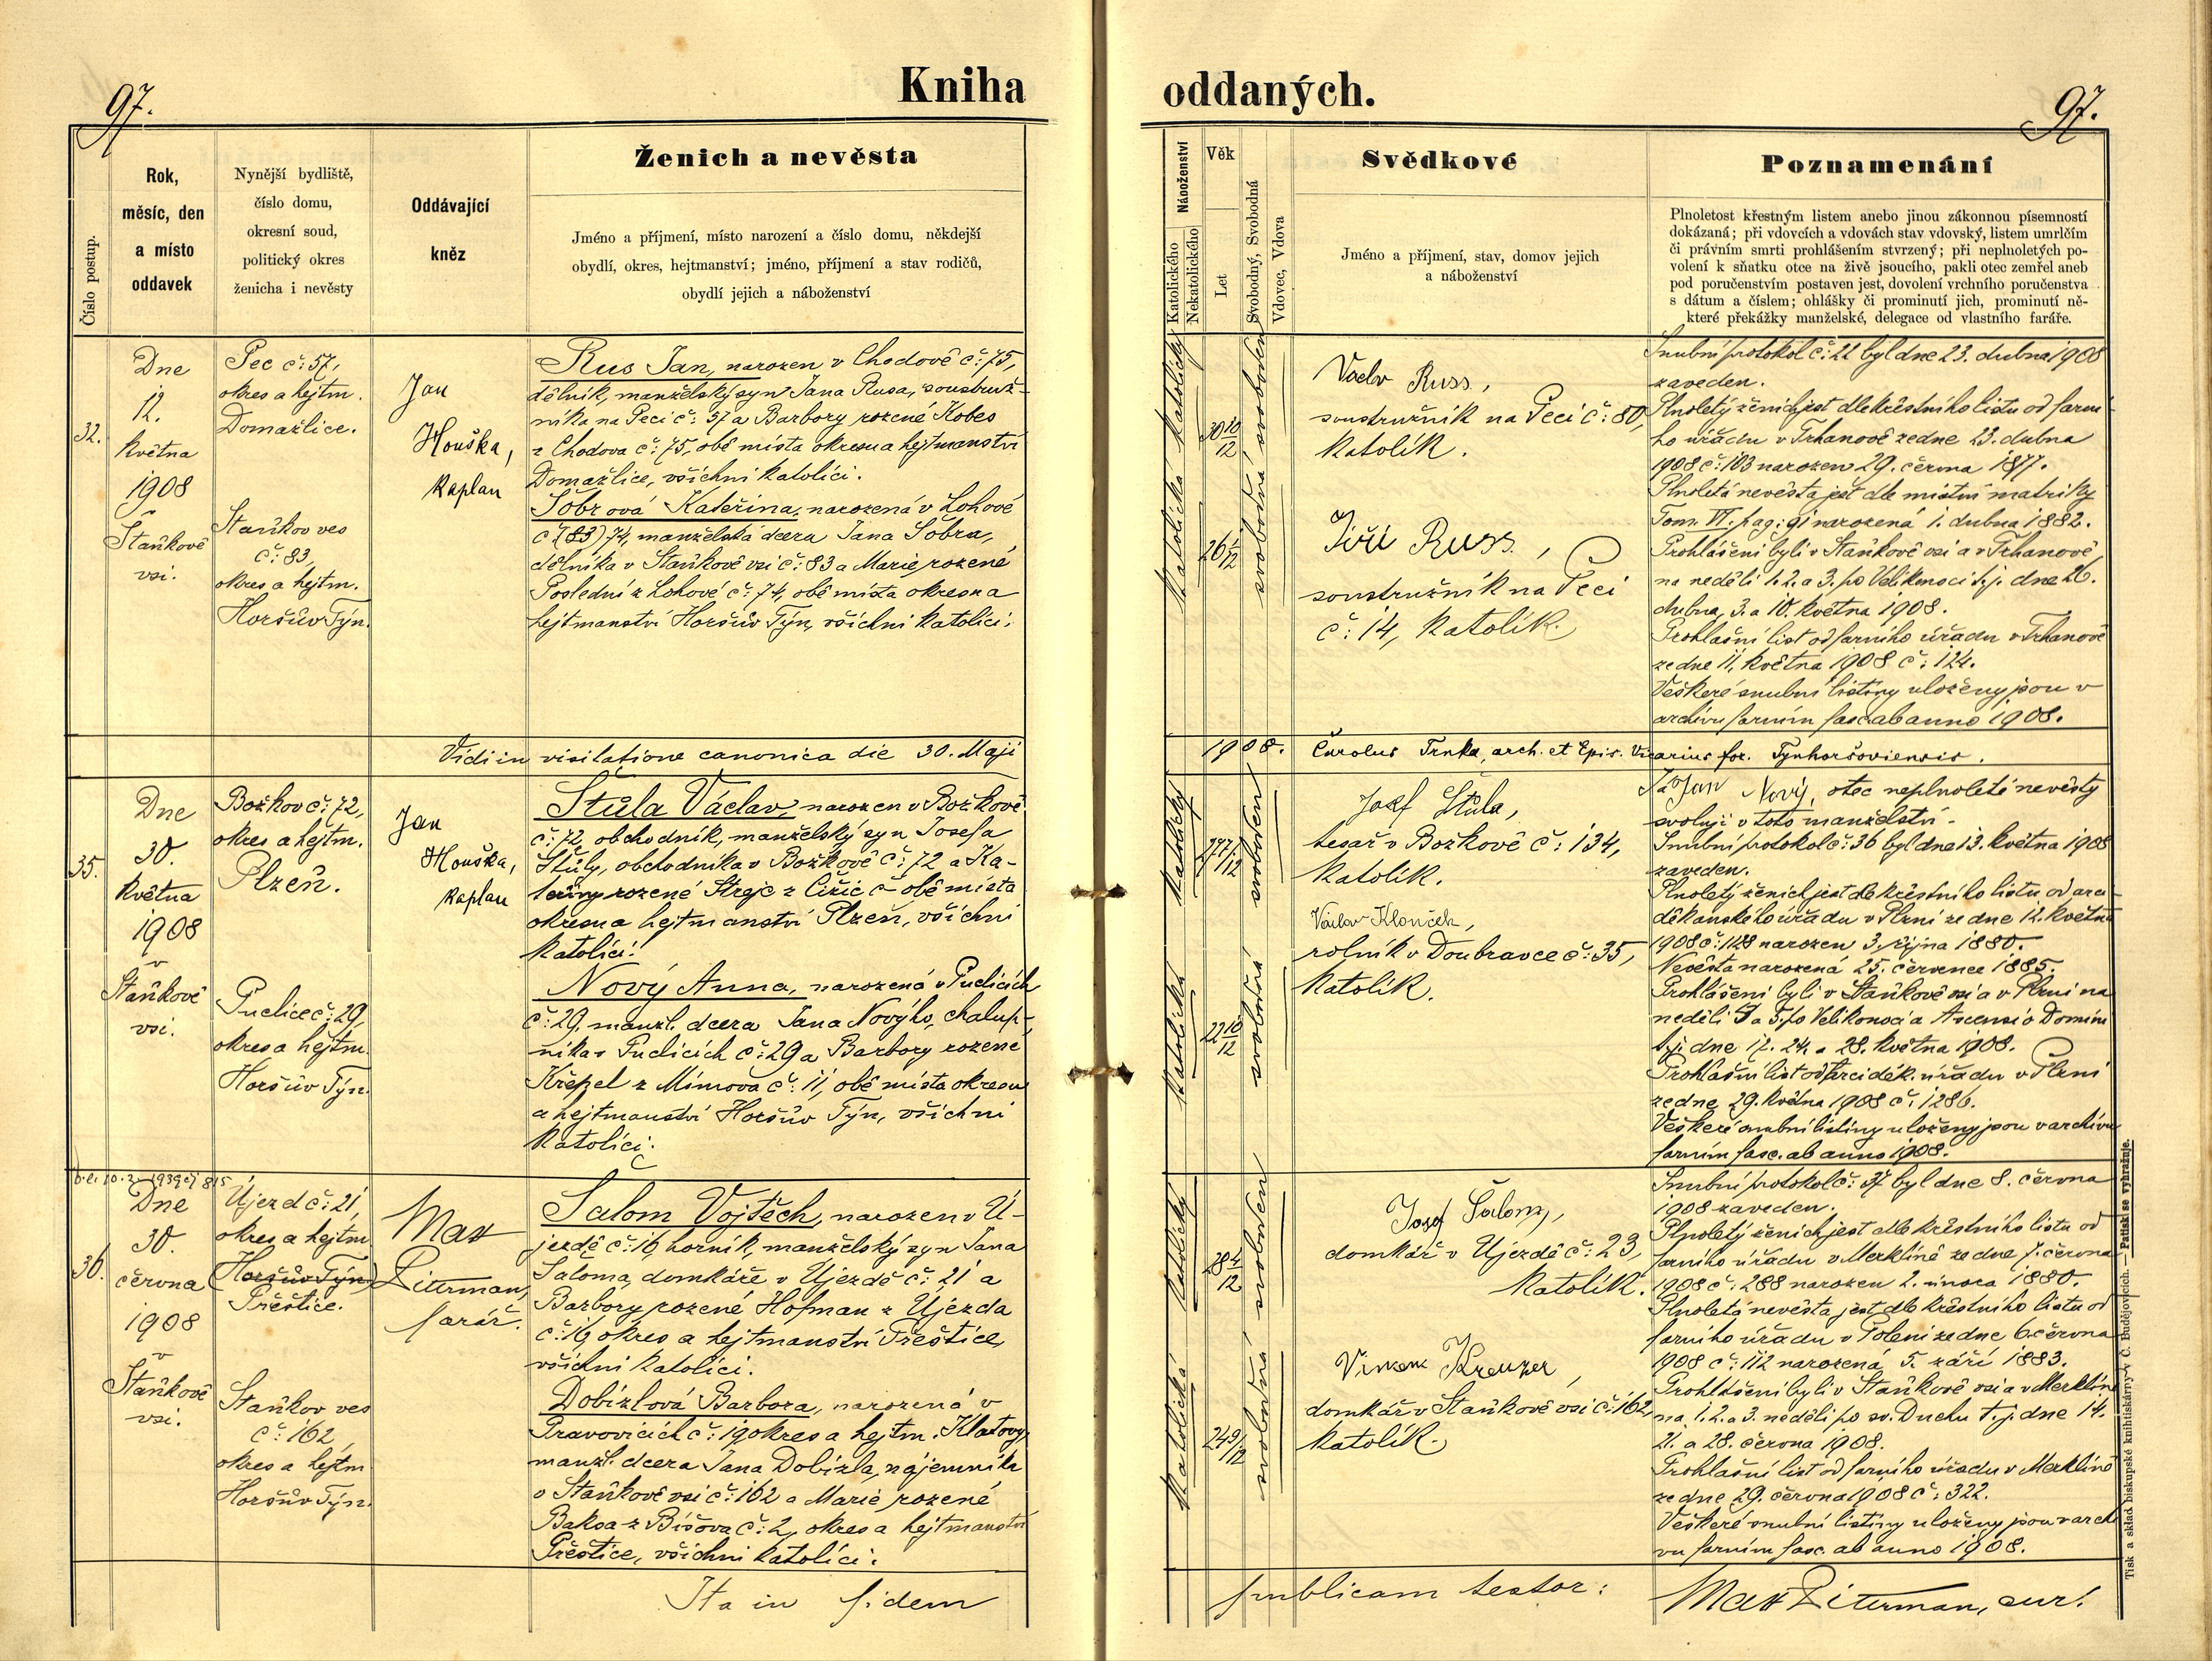 97.
Kniha
Číslo postup.
Rok,
měsíc, den
a místo
oddavek
Nynější bydliště,
číslo domu,
okresní soud,
politický okres
ženicha i nevěsty
Oddávající
kněz
Ženich a nevěsta
Jméno a příjmení, místo narození a číslo domu, někdejší
obydlí, okres, hejtmanství; jméno, příjmení a stav rodičů,
obydlí jejich a náboženství
32.
Dne
12.
května
1908
Staňkově
vsi.
Pec č: 57,
okres a hejtm.
Domažlice.
Staňkov ves
č: 83,
okres a hejtm.
Horšův Týn.
Jan
Houška,
kaplan
Rus Jan, narozen v Chodově č: 75,
dělník, manželský syn Jana Rusa, soustruž-
níka na Peci č: 57 a Barbory rozené Kobes
z Chodova č: 75, obě místa okresu a hejtmanství
Domažlice, všichni katolíci.
Sobrová Kateřina, narozená v Lohově
č (83) 74, manželská dcera Jana Sobra,
dělníka v Staňkově vsi č: 83 a Marie rozené
Poslední z Lohové č: 74, obě místa okresu a
hejtmanství Horšův Týn, všichni katolíci.
Vidi in visitatione canonica die 30. Maji
35.
Dne
30.
května
1908
v
Staňkově
vsi.
Božkov č: 72,
okres a hejtm.
Plzeň.
Pudlice č: 29,
okres a hejtm.
Horšův Týn.
Jan
Houška,
kaplan
Štůla Václav, narozen v Božkově
č: 72, obchodník, manželský syn Josefa
Štůly, obchodníka v Božkově č: 72 a Ka-
teřiny rozené Strejc z Čižic č obě místa
okresu a hejtmanství Plzeň, všichni
katolíci.
Nový Anna, narozená v Puclicích
č: 29. manžl. dcera Jana Novýho, chalup-
níka v Puclicích č: 29 a Barbory rozené
Křepel z Mimova č: 11, obě místa okresu
a hejtmanství Horšův Týn, všichni
katolíci.
36.
Dne
30.
června
1908
v
Staňkově
vsi.
Újezd č: 21,
okres a hejtm
(Horšův Týn)
Přeštice.
Staňkov ves
č: 162,
okres a hejtm
Horšův Týn.
Max
Literman,
farář.
Šalom Vojtěch, narozen v Ú-
jezdě č: 16, horník, manželský syn Jana
Šaloma, domkáře v Újezdě č: 21 a
Barbory rozené Hofman z Újezda
č: 16 okres a hejtmanství Přeštice,
všichni katolíci.
Dobizlová Barbora, narozená v
Pravovicích č: 19 okres a hejtm. Klatovy
manžl. dcera Jana Dobizla, nájemníka
v Staňkově vsi č: 162 a Marie rozené
Baksa z Bíšova č: 2, okres a hejtmanství
Přeštice, všichni katolíci.
Ita in fidem
oddaných.
97.
Náboženství
Katolického
Nekatolického
Věk
Let
Svobodný, Svobodná
Vdovec, Vdova
Svědkové
Jméno a příjmení, stav, domov jejich
a náboženství
Poznamenání
Plnoletost křestným listem anebo jinou zákonnou písemností
dokázaná; při vdovcích a vdovách stav vdovský, listem umrlčím
či právním smrti prohlášením stvrzený; při neplnoletých po-
volení k sňatku otce na živě jsoucího, pakli otec zemřel aneb
pod poručenstvím postaven jest, dovolení vrchního poručenstva
s dátum a číslem; ohlášky či prominutí jich, prominutí ně-
které překážky manželské, delegace od vlastního faráře.
katolický
30 10/12
svoboden
katolická
26 1/12
svobodná
Václav Russ,
soustružník na Peci č: 80,
katolík.
Jiří Russ,
soustružník na Peci
č: 14, katolík.
Snubní protokol č: 22 byl dne 23. dubna 1908
zaveden.
Plnoletý ženich jest dle křestního listu od farní-
ho úřadu v Trhanově ze dne 23. dubna
1908 č: 103 narozen 29. června 1877.
Plnoletá nevěsta jest dle místní matriky
Tom. VI. pag: 91 narozená 1. dubna 1882.
Prohlášeni byli v Staňkově vsi a v Trhanově
na neděli 1. 2. a 3. po Velikonoci t. j. dne 26.
dubna, 3. a 10. května 1908.
Prohlašní list od farního úřadu v Trhanově
ze dne 11. května 1908 č: 124.
Veškeré snubní listiny uloženy jsou v
archivu farním fasc. ab anno 1908.
1908. Carolus Trnka, arch. et Epis. Vicarius for. Tynhoršoviensis.
katolický
27 7/12
svoboden
katolická
22 10/12
svobodná
Josef Štůla,
tesař v Božkově č: 134,
katolík.
Václav Klouček,
rolník v Doubravce č: 35,
katolík.
Já Jan Nový, otec neplnoleté nevěsty
svoluji v toto manželství.
Snubní protokol č: 36 byl dne 13. května 1908
zaveden.
Plnoletý ženich jest dle křestního listu od arci-
děkanského úřadu v Plzni ze dne 12. května
1908 č: 1128 narozen 3. října 1880.
Nevěsta narozená 25. července 1885.
Prohlášeni byli v Staňkově vsi a v Plzni na
neděli 4 a 5. po Velikonoci a Ascensio Domini
t. j. dne 17. 24. a 28. května 1908.
Prohlašní list od arciděk. úřadu v Plzni
ze dne 29. května 1908 č: 1286.
Veškeré snubní listiny uloženy jsou v archivu
farním fasc. ab anno 1908.
katolický
28 4/12
svoboden
katolická
24 9/12
svobodná
Josef Šalom,
domkář v Újezdě č: 23,
katolík.
Vincenc Kreuzer,
domkář v Staňkově vsi č: 162,
katolík.
Snubní protokol č: 37 byl dne 8. června
1908 zaveden.
Plnoletý ženich jest dle křestního listu od
farního úřadu v Merklíně ze dne 7. června
1908 č: 288 narozen 2. února 1880.
Plnoletá nevěsta jest dle křestního listu od
farního úřadu v Poleni ze dne 6. června
1908 č: 112 narozená 5. září 1883.
Prohlášeni byli v Staňkově vsi a v Merklíně
na 1. 2. a 3. neděli po sv. Duchu t. j. dne 14.
21. a 28. června 1908.
Prohlašní list od farního úřadu v Merklíně
ze dne 29. června 1908 č: 322.
Veškeré snubní listiny uloženy jsou v archi-
vu farním fasc. ab anno 1908.
publicam testor:
Max Literman, cur.
Tisk a sklad biskupské knihtiskárny v Č. Budějovicích. — Patisk se vyhražuje.